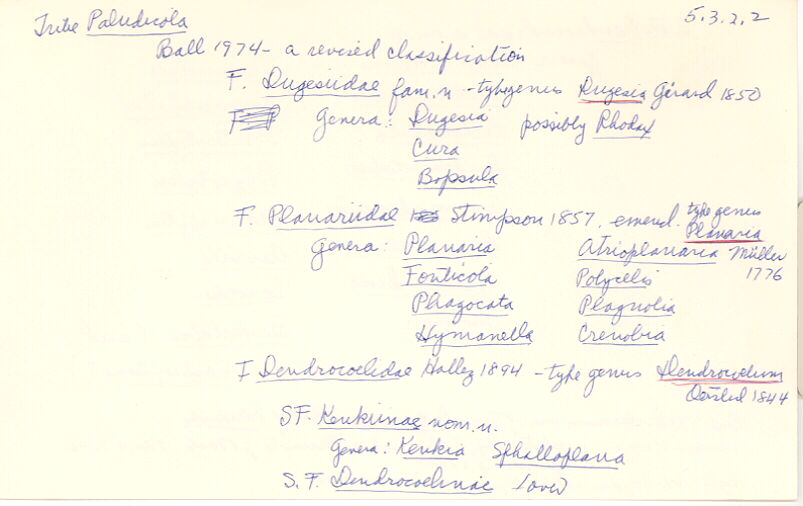 5.3.2.2
Tribe Paludicola
Ball 1974 - a revised classification
F. Dugesiidae fam.n - typegenus Dugesia Girard 1850
Genera: Dugesia possibly Rhodax
Cura
Bopsula
F. Planariidae Stimpson 1857, emend. type genus
Planaria
Genera: Planaria Atrioplanaria Müller
1776
Fonticola Polycelis
Phagocata Plagnolia
Hymanella Crenobia
F Dendrocoelidae Hallez 1894 - type genus Dendrocoelum
Oersted 1844
SF. Kenkiinae nom.n.
Genera: Kenkia Sphalloplana
S.F. Dendrocoelinae (over)